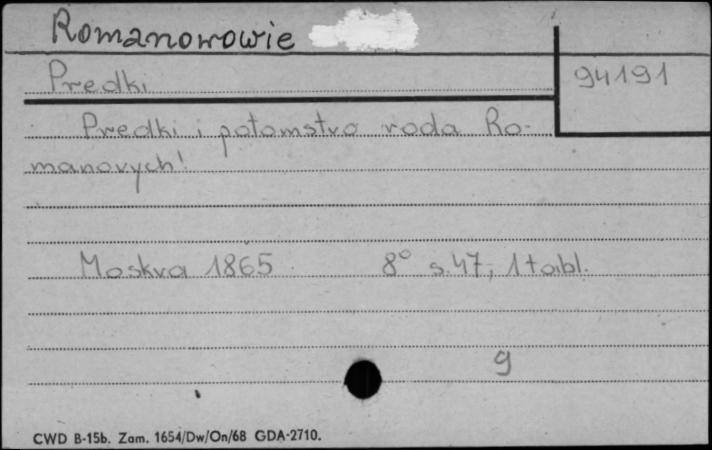 Romanowowie
Predki
94191
Predki i potomstvo roda Ro-
manovych!
Moskva 1865 8° s.47, 1 tabl.
9
CWD B-15b. Zam. 1654/Dw/On/68 GDA-2710.